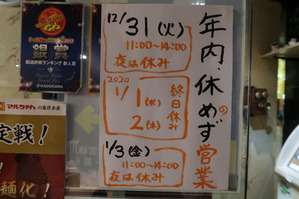 年内・休めず営業
12/31(火)
11:00~14:00
夜は休み
2020
1/1(水)
2(木)
終日休み
1/3(金)
11:00~14:00
夜は休み
銀賞
KADOKAWA
マルちゃん
定戦!
麺化!